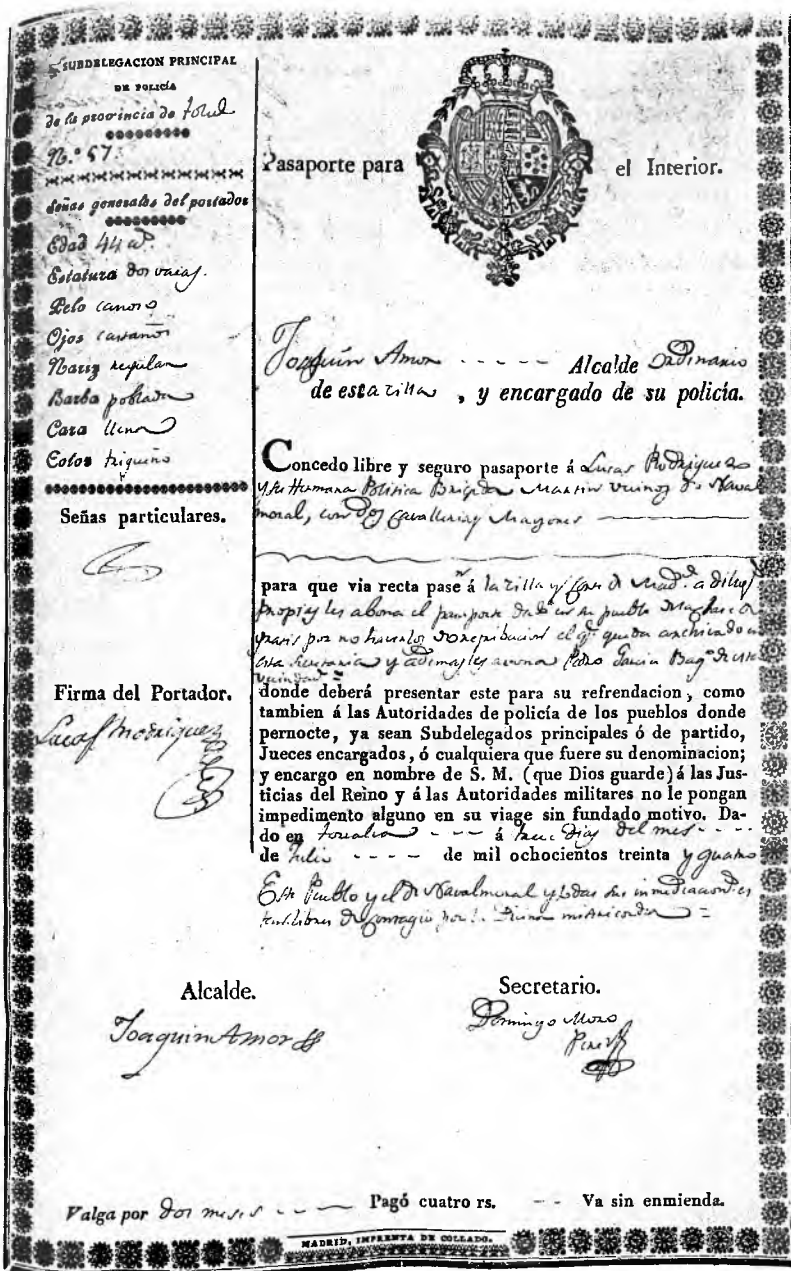 SUBDELEGACION PRINCIPAL
DE POLICÍA
de la provincia de
N.º 57
Señas generales del portador
Edad 44 a.s
Estatura dos varas.
Pelo canoso
Ojos castaños
Nariz regular
Barba poblada
Cara llena
Color trigueño
Señas particulares.
Firma del Portador.
Lucas Rodriguez
Pasaporte para el Interior.
Joaquin Amor - - - - - Alcalde Ordinario
de esta villa, y encargado de su policía.
Concedo libre y seguro pasaporte á Lucas Rodriguez
y su Hermana Politica Brigida Martin vecinos de Naval
moral, con dos Cavallerias Mayores
para que via recta pase á la villa y Corte de Mad.d a
propias les abona el pasaporte de su pueblo
gratis por no haverlos el q.e queda archivado
esta Secretaria y ademas les abona Pedro Garcia de esta
vecindad =
donde deberá presentar este para su refrendacion, como
tambien á las Autoridades de policía de los pueblos donde
pernocte, ya sean Subdelegados principales ó de partido,
Jueces encargados, ó cualquiera que fuere su denominacion;
y encargo en nombre de S. M. (que Dios guarde) á las Jus-
ticias del Reino y á las Autoridades militares no le pongan
impedimento alguno en su viage sin fundado motivo. Da-
do en - - - - á dias del mes - - - -
de Julio - - - - de mil ochocientos treinta y quatro
Este Pueblo y el de Navalmoral y todas sus inmediaciones
estan libres de contagio por la Divina misericordia =
Alcalde.
Joaquin Amor
Secretario.
Domingo Moro
Perez
Valga por dos meses - - - Pagó cuatro rs. - - Va sin enmienda.
MADRID, IMPRENTA DE COLLADO.